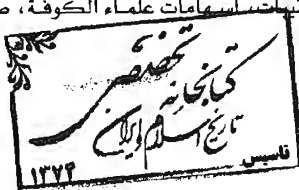 إسهامات علماء الكوفة، ص
کتابخانه تخصصی
تاریخ اسلام و ایران
تاسیس
۱۳۷۴